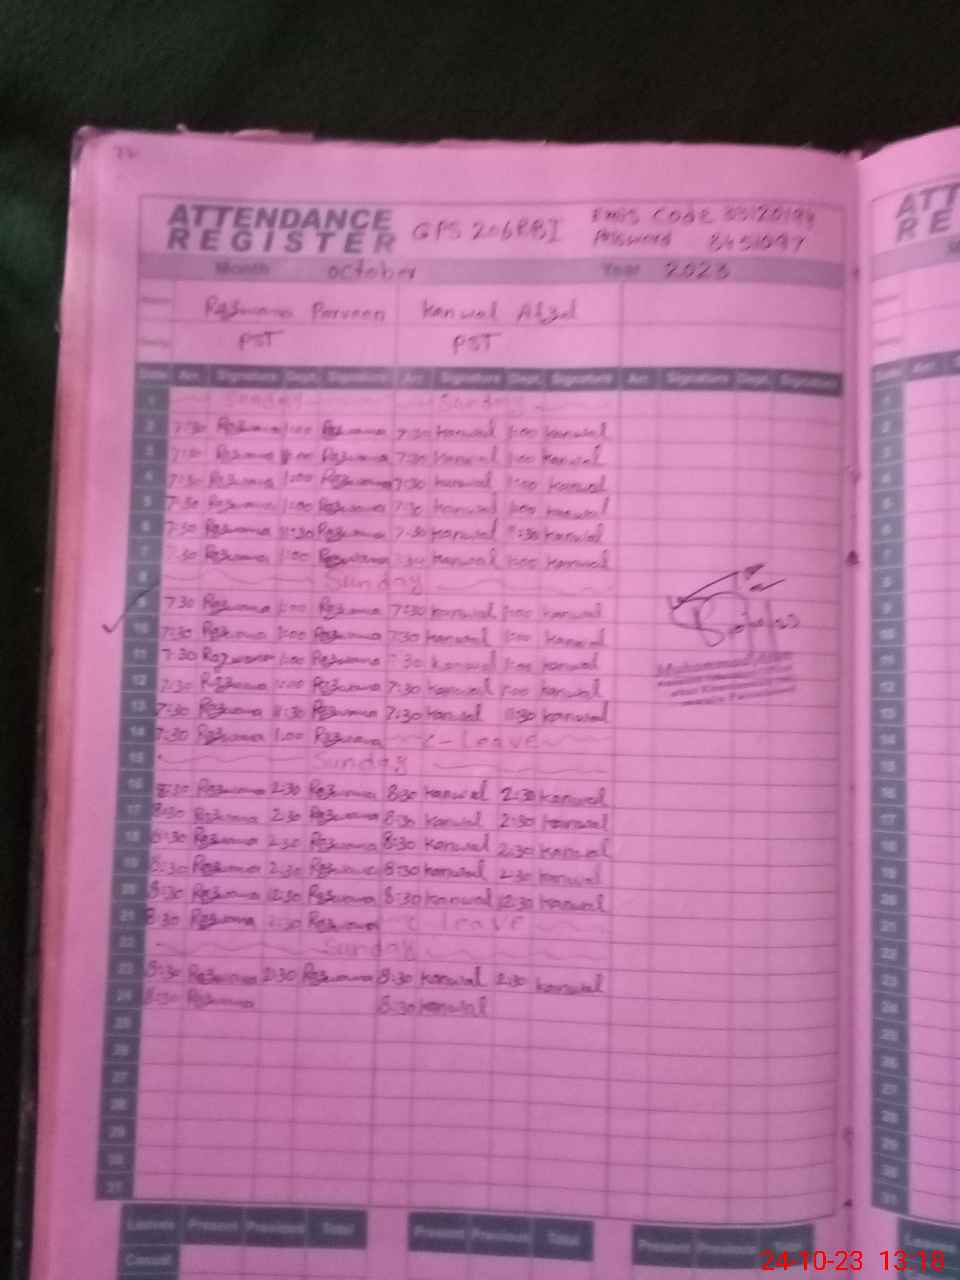 ATTENDANCE
REGISTER
GPS 206RBI
EMIS CODE
Password
Month October Year 2023
Rezwana Parveen Kanwal Afzal
PST PST
Date Arr. Signature Dept. Signature Arr. Signature Dept. Signature Arr. Signature Dept. Signature
1 Sunday Sunday
2 7:30 Rezwana 1:00 Rezwana 7:30 Kanwal 1:00 Kanwal
3 7:30 Rezwana 1:00 Rezwana 7:30 Kanwal 1:00 Kanwal
4 7:30 Rezwana 1:00 Rezwana 7:30 Kanwal 1:00 Kanwal
5 7:30 Rezwana 1:00 Rezwana 7:30 Kanwal 1:00 Kanwal
6 7:30 Rezwana 11:30 Rezwana 7:30 Kanwal 11:30 Kanwal
7 7:30 Rezwana 1:00 Rezwana 7:30 Kanwal 1:00 Kanwal
8 Sunday
9 7:30 Rezwana 1:00 Rezwana 7:30 Kanwal 1:00 Kanwal
10 7:30 Rezwana 1:00 Rezwana 7:30 Kanwal 1:00 Kanwal
11 7:30 Rezwana 1:00 Rezwana 7:30 Kanwal 1:00 Kanwal
12 7:30 Rezwana 1:00 Rezwana 7:30 Kanwal 1:00 Kanwal
13 7:30 Rezwana 11:30 Rezwana 7:30 Kanwal 11:30 Kanwal
14 7:30 Rezwana 1:00 Rezwana C-Leave
15 Sunday
16 8:30 Rezwana 2:30 Rezwana 8:30 Kanwal 2:30 Kanwal
17 8:30 Rezwana 2:30 Rezwana 8:30 Kanwal 2:30 Kanwal
18 8:30 Rezwana 2:30 Rezwana 8:30 Kanwal 2:30 Kanwal
19 8:30 Rezwana 2:30 Rezwana 8:30 Kanwal 2:30 Kanwal
20 8:30 Rezwana 12:30 Rezwana 8:30 Kanwal 12:30 Kanwal
21 8:30 Rezwana 2:30 Rezwana C Leave
22 Sunday
23 8:30 Rezwana 2:30 Rezwana 8:30 Kanwal 2:30 Kanwal
24 8:30 Rezwana 8:30 Kanwal
25
26
27
28
29
30
31
Muhammad
Leaves Present Previous Total Present Previous Total Present Previous Total
Casual
24-10-23 13:18